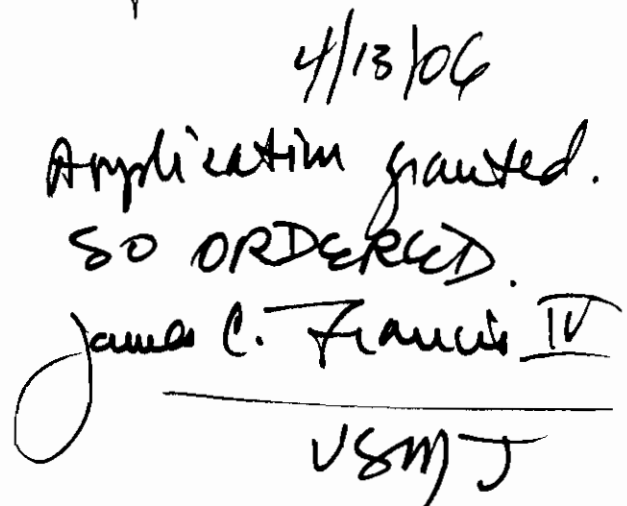 4/13/06
Application granted.
SO ORDERED.
James C. Francis IV
USMJ